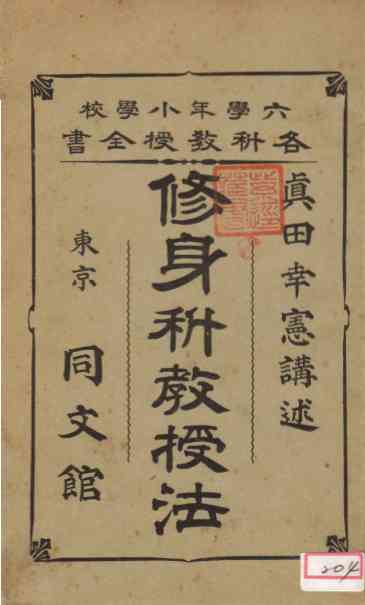 六學年小學校
各科教授全書
眞田幸憲講述
修身科教授法
東京 同文館
204